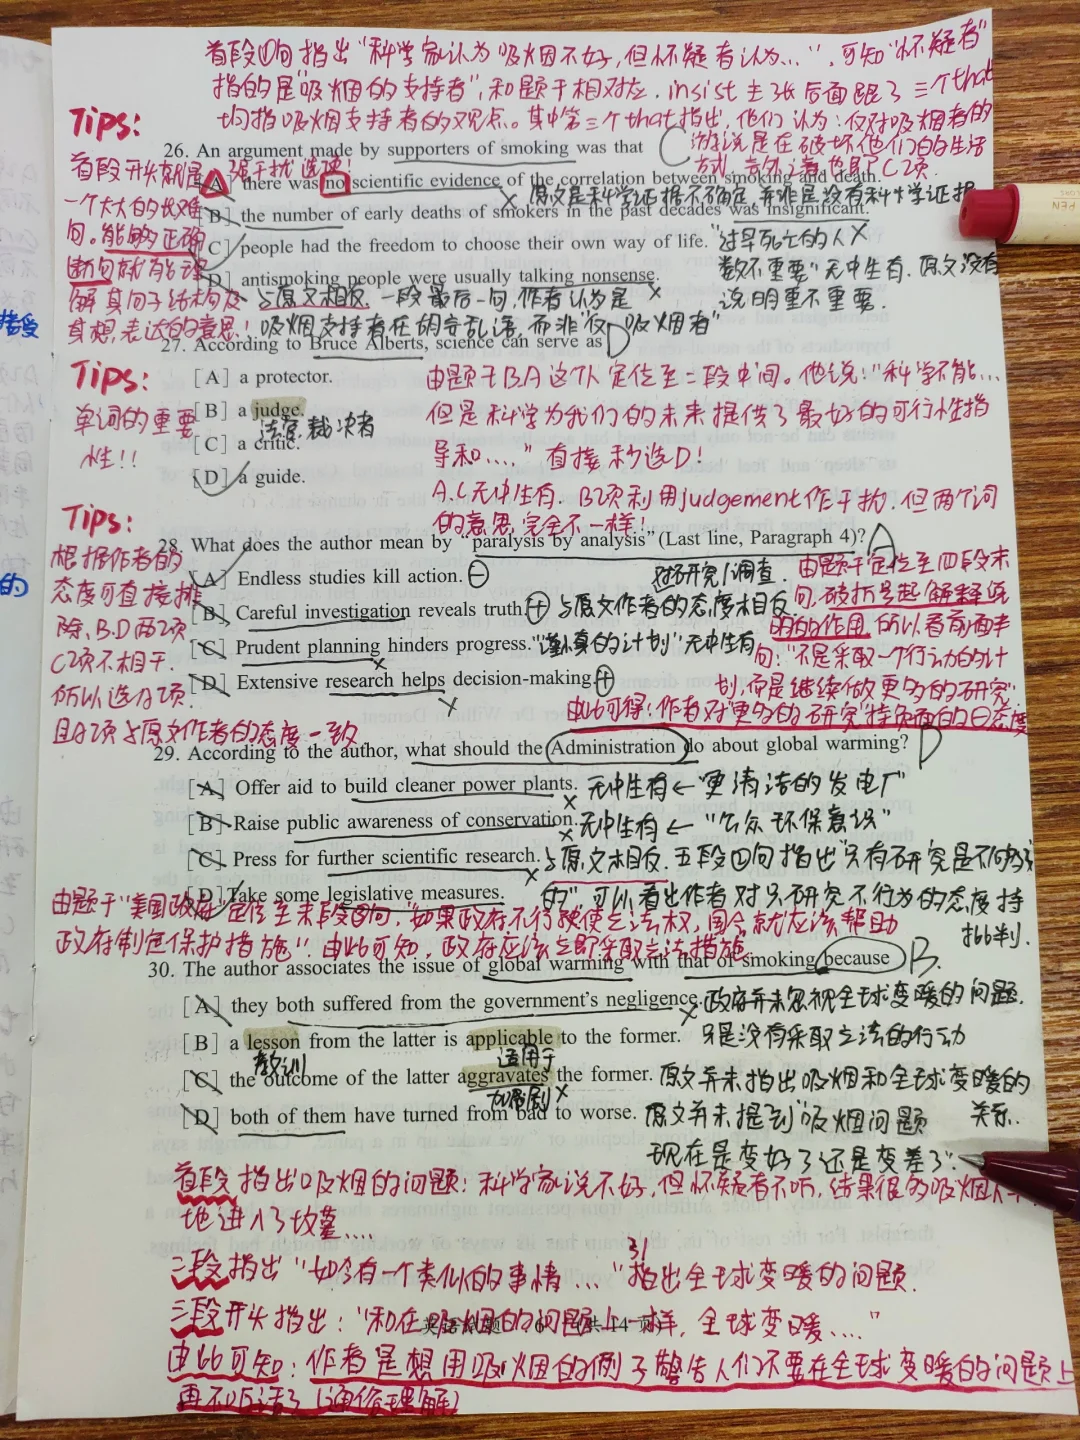 首段①句指出"科学家认为吸烟不好,但怀疑者认为...",可知"怀疑者"
指的是"吸烟的支持者",和题干相对应.insist主张后面跟了三个that
均指吸烟支持者的观点。其中第三个that指出,他们认为:反对吸烟者的
游说是在破坏他们的生活
方式,言外之意也即C项.
Tips:
首段开头就是
一个大大的长难
句。能够正确
断句就能理
解其句子结构及
其想表达的意思!
26. An argument made by supporters of smoking was that C
强干扰选项!
[A] there was no scientific evidence of the correlation between smoking and death.
原文是科学证据不确定,并非是没有科学证据
[B] the number of early deaths of smokers in the past decades was insignificant.
[C] people had the freedom to choose their own way of life. "过早死亡的人
数不重要"无中生有.原文没有
说明重不重要.
[D] antismoking people were usually talking nonsense.
与原文相反.一段最后一句,作者认为是
吸烟支持者在胡言乱语,而非"反吸烟者"
27. According to Bruce Alberts, science can serve as D
Tips:
单词的重要
性!!
[A] a protector.
[B] a judge.
法官,裁决者
[C] a critic.
[D] a guide.
由题干B.A这个人定位至二段中间。他说:"科学不能...
但是科学为我们的未来提供了最好的可行性指
导和....."直接秒选D!
A.C无中生有.B项利用judgement作干扰.但两个词
的意思完全不一样!
Tips:
根据作者的
态度可直接排
除,B.D两项
C项不相干.
所以选A项.
且A项与原文作者的态度一致
28. What does the author mean by "paralysis by analysis" (Last line, Paragraph 4)? A
[A] Endless studies kill action.
对研究/调查.
[B] Careful investigation reveals truth. 与原文作者的态度相反
[C] Prudent planning hinders progress. "谨慎的计划"无中生有
[D] Extensive research helps decision-making.
由题干定位至四段末
句,破折号起解释说
明的作用,所以看前面半
句:"不是采取一个行动的计
划,而是继续做更多的研究"
由此可得!作者对"更多的研究"持负面的态度
29. According to the author, what should the Administration do about global warming? D
[A] Offer aid to build cleaner power plants. 无中生有←"更清洁的发电厂"
[B] Raise public awareness of conservation. 无中生有←"公众环保意识"
[C] Press for further scientific research. 与原文相反.五段①句指出"只有研究是不够
的",可以看出作者对只研究不行为的态度持
批判.
[D] Take some legislative measures.
由题干"美国政府"定位至末段④句,"如果政府不行驶使立法权,国会就应该帮助
政府制定保护措施"!由此可知,政府应该立即采取立法措施
30. The author associates the issue of global warming with that of smoking because B.
[A] they both suffered from the government's negligence. 政府并未忽视全球变暖的问题.
只是没有采取立法的行动
[B] a lesson from the latter is applicable to the former.
教训 适用于
[C] the outcome of the latter aggravates the former. 原文并未指出吸烟和全球变暖的
关系.
加剧
[D] both of them have turned from bad to worse. 原文并未提到"吸烟问题
现在是变好了还是变差了".
首段指出吸烟的问题:科学家说不好,但怀疑者不听,结果很多吸烟
地进入了坟墓....
二段指出"如今有一个类似的事情...."引出全球变暖的问题.
三段开头指出:"和在吸烟的问题上一样,全球变暖...."
英语试题 6 共14页
由此可知:作者是想用吸烟的例子警告人们不要在全球变暖的问题上
再不听话了(通俗理解)
接受
的